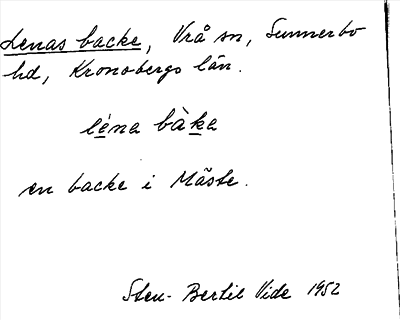 Lenas backe, Vrå sn, Sunnerbo
hd, Kronobergs län.
léna bàka
en backe i Måste.
Sten-Bertil Vide 1952